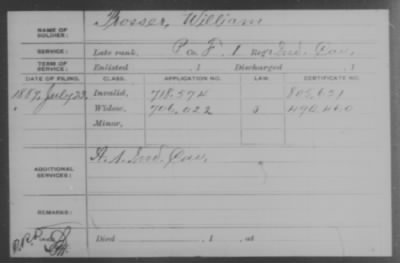 NAME OF SOLDIER: Prosser, William
SERVICE: Late rank, Co. F, 1 Reg't Ind. Cav.
TERM OF SERVICE: Enlisted , 1 Discharged , 1
DATE OF FILING. CLASS. APPLICATION NO. LAW. CERTIFICATE NO.
1889, July 22, Invalid, 718,574 805,631
Widow, 706,022 490,460
Minor,
ADDITIONAL SERVICES: A. 1. Ind. Cav.
REMARKS:
Died , 1 , at